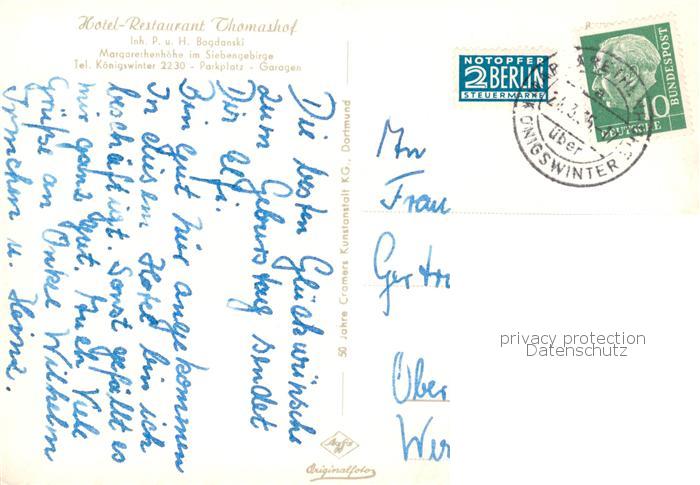 Hotel-Restaurant Thomashof
Inh. P. u. H. Bogdanski
Margarethenhöhe im Siebengebirge
Tel. Königswinter 2230 - Parkplatz - Garagen
Die besten Glückwünsche
zum Geburtstag sendet
Dir Elfi.
Bin gut hier angekommen
In diesem Hotel bin ich
beschäftigt. Sonst gefällt es
mir ganz gut. Auch viele
Grüße an Onkel Wilhelm
u. Heinz.
50 Jahre Cramers Kunstanstalt KG., Dortmund
Agfa
Originalfoto
NOTOPFER
2 BERLIN
STEUERMARKE
10
DEUTSCHE
BUNDESPOST
über
KÖNIGSWINTER
An
Frau
Ger
Ober
Wer
privacy protection
Datenschutz